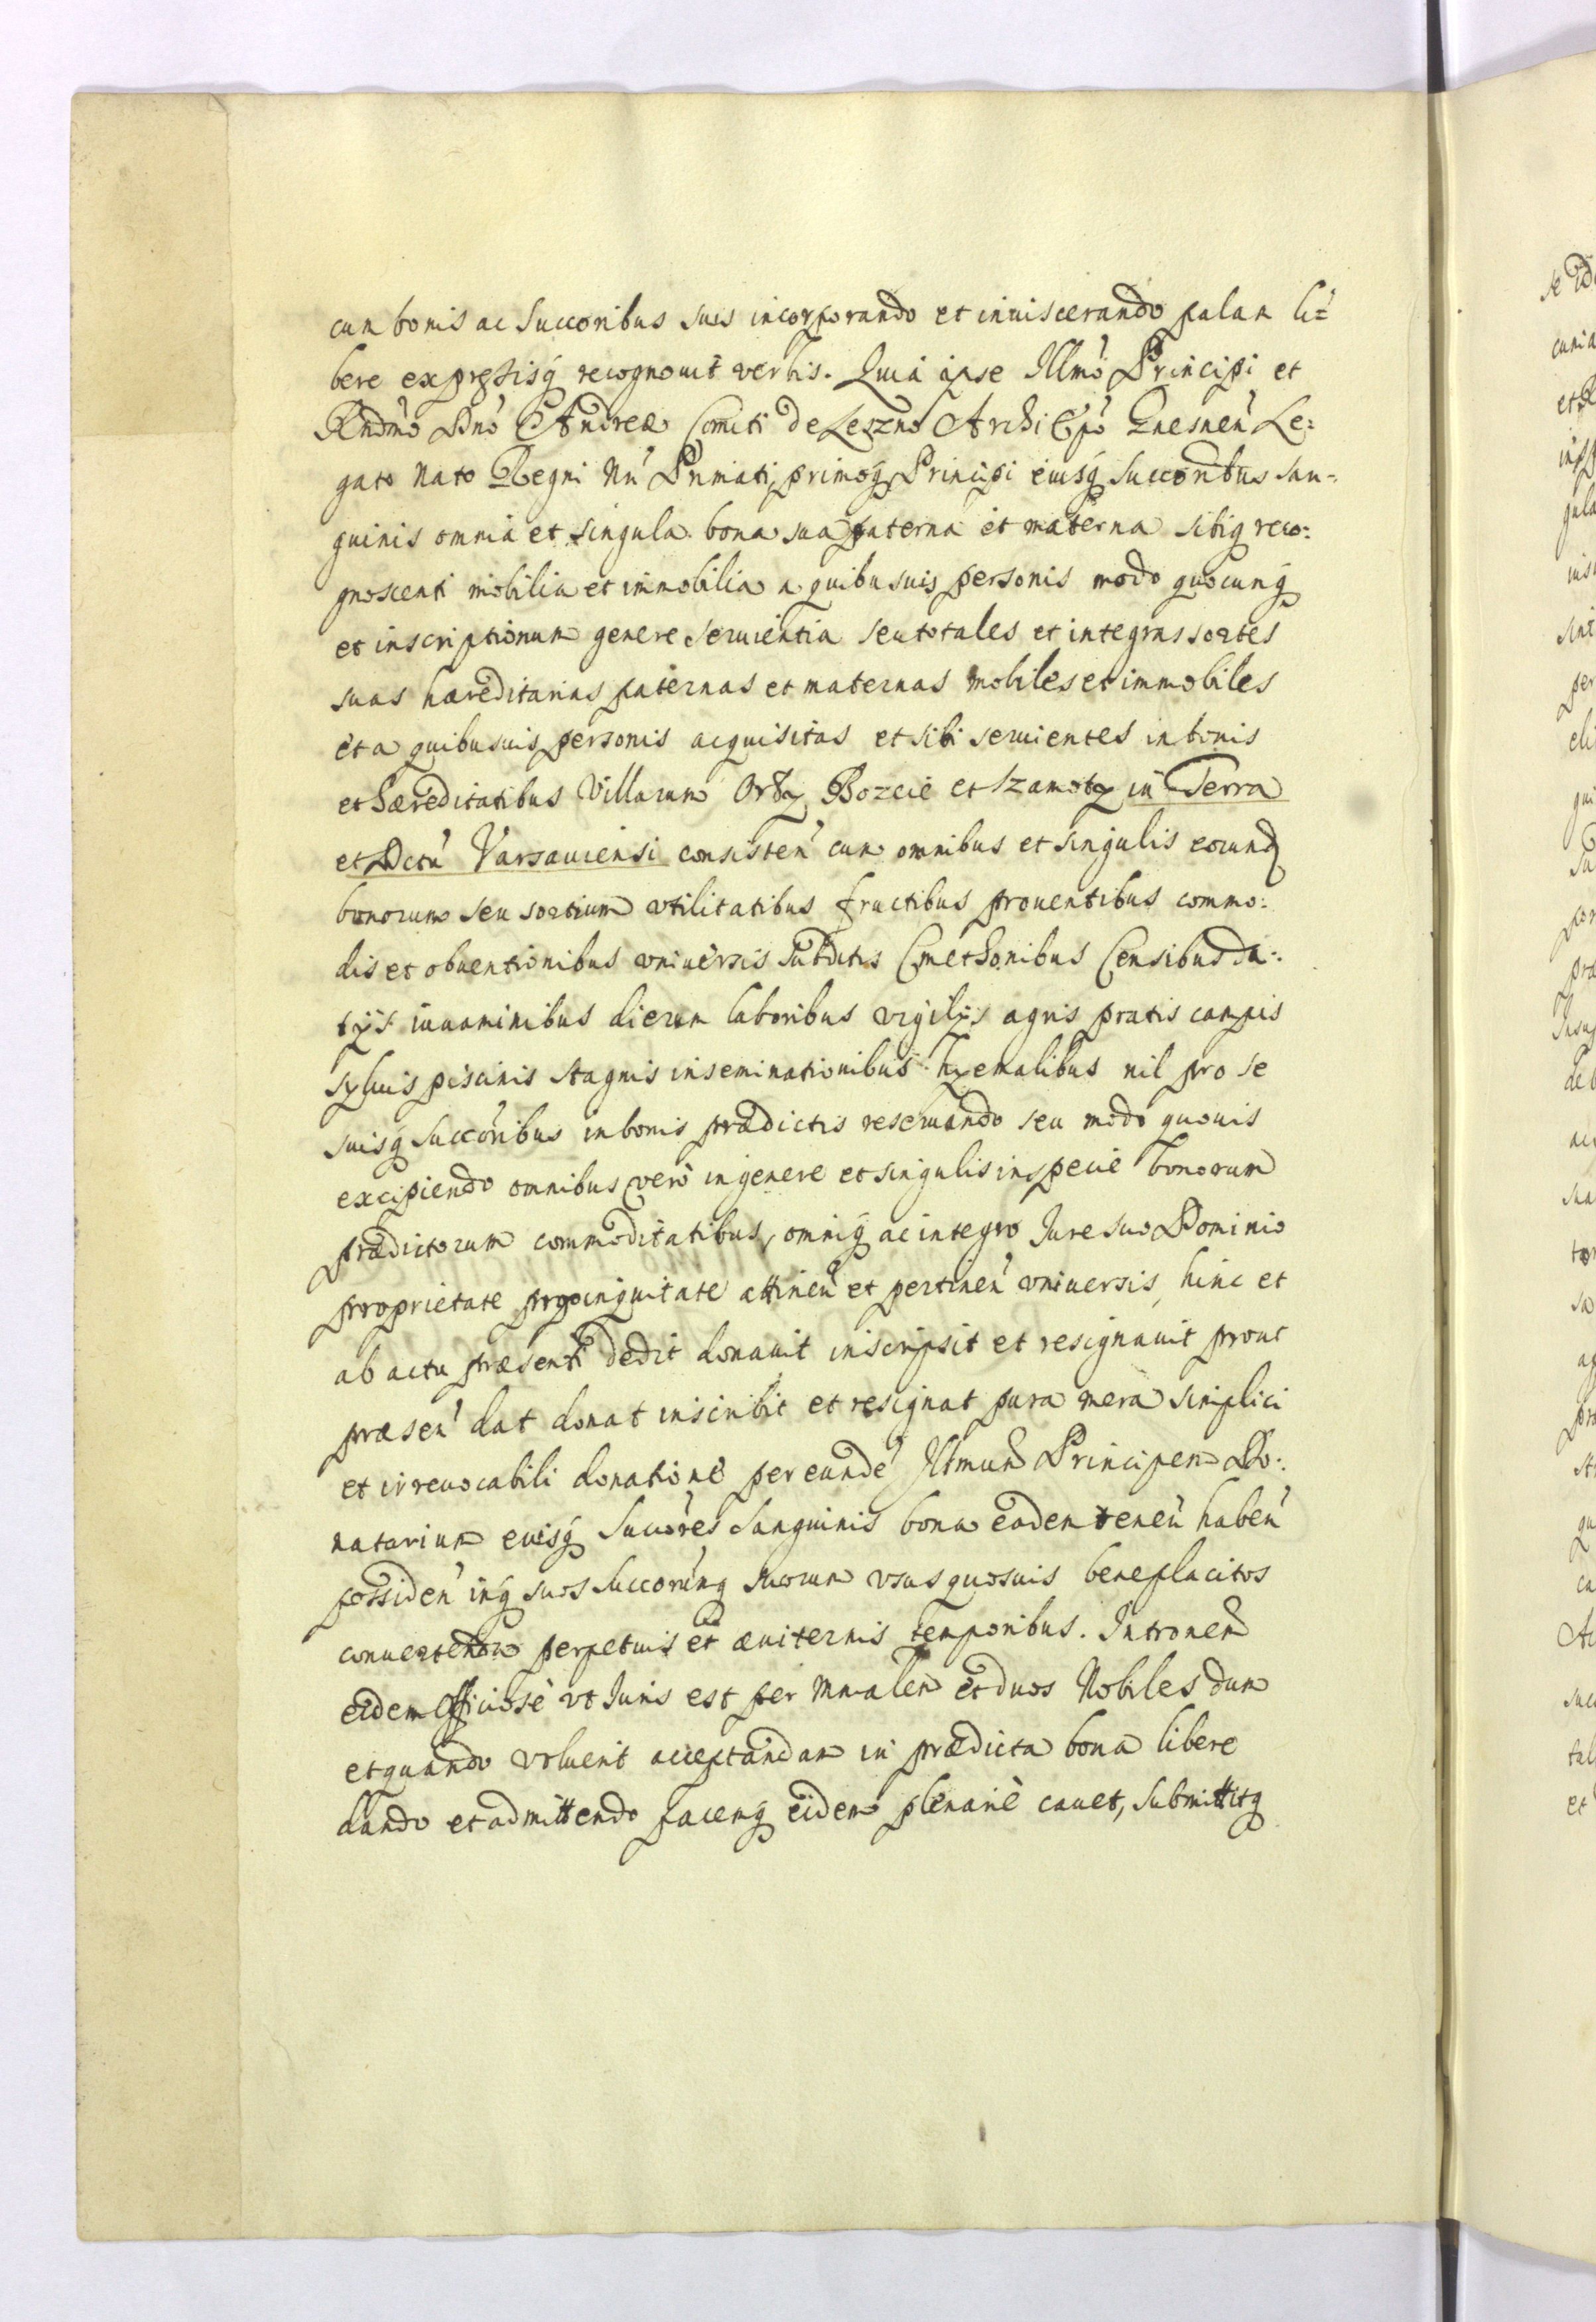 cum bonis ac Succoribus suis incorporando et inuiscerando palam li=
bere expressisq recognouit verbis. Quia ipse Illmo Principi et
Rndmo Dno Andreae Comiti de Leszno Archi Epo Gnesnen Le=
gato Nato Regni Nri Primati, primoq Principi eiusq Succoribus san=
guinis omnia et singula bona sua paterna et materna sibiq reco:
gnoscenti mobilia et immobilia a quibusuis personis modo quocunq
et inscriptionum genere seruientia seu totales et integras sortes
suas haereditarias paternas et maternas mobiles et immobiles
et a quibusuis personis acquisitas et sibi seruientes in bonis
et Haereditatibus Villarum Orły Bozcie et Szamoty in Terra
et Dctu Varsauiensi consisten cum omnibus et singulis eorund
bonorum seu sortium vtilitatibus fructibus prouentibus commo:
dis et obuentionibus vniuersis Subditis Cmethonibus Censibus da:
tijs iuuaminibus dierum laboribus vigilijs agris pratis campis
syluis piscinis stagnis inseminationibus hyemalibus nil pro se
suisq Succoribus in bonis praedictis reseruando seu modo quouis
excipiendo omnibus vero in genere et singulis in specie bonorum
praedictorum commoditatibus, omniq ac integro Iure suo Dominio
proprietate propinquitate attinen et pertinen vniuersis, hinc et
ab actu praesenti dedit donauit inscripsit et resignauit prout
praesen dat donat inscribit et resignat pura mera simplici
et irreuocabili donatione per eunde Illmum Principem Do:
natarium eiusq Succores Sanguinis bona eadem tenen haben
possiden inq suos Succorumq suorum vsus quosuis beneplacitos
conuertenda perpetuis et aeuiternis temporibus. Intromen
eidem officiose vt Iuris est per Mnralem et duos Nobiles dum
et quando voluerit acceptandam in praedicta bona libere
dando et admittendo pacemq eidem plenarie cauet, submittitq